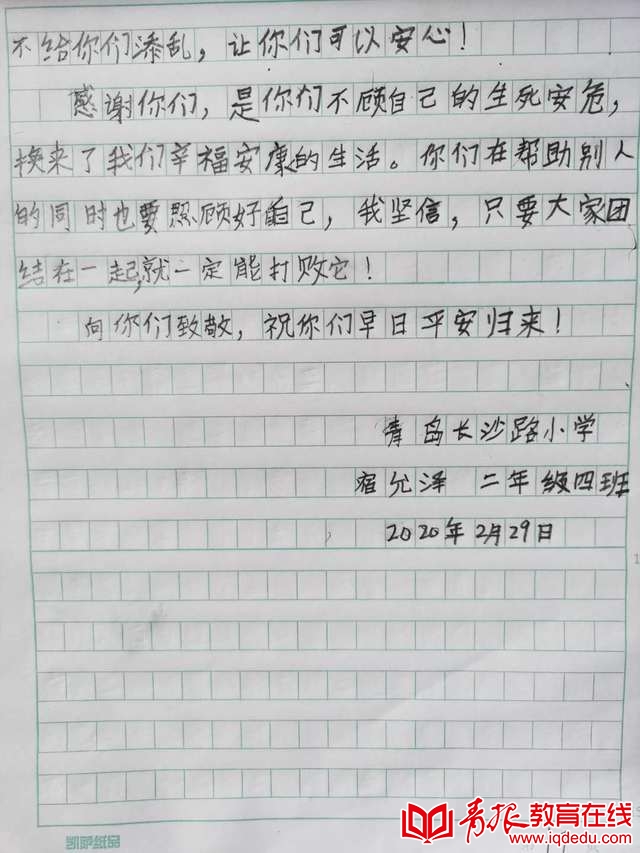 不给你们添乱，让你们可以安心！
感谢你们，是你们不顾自己的生死安危，
换来了我们辛福安康的生活。你们在帮助别人
的同时也要照顾好自己，我坚信，只要大家团
结在一起，就一定能打败它！
向你们致敬，祝你们早日平安归来！
青岛长沙路小学
宿允泽 二年级四班
2020年2月29日
青报教育在线
www.iqdedu.com